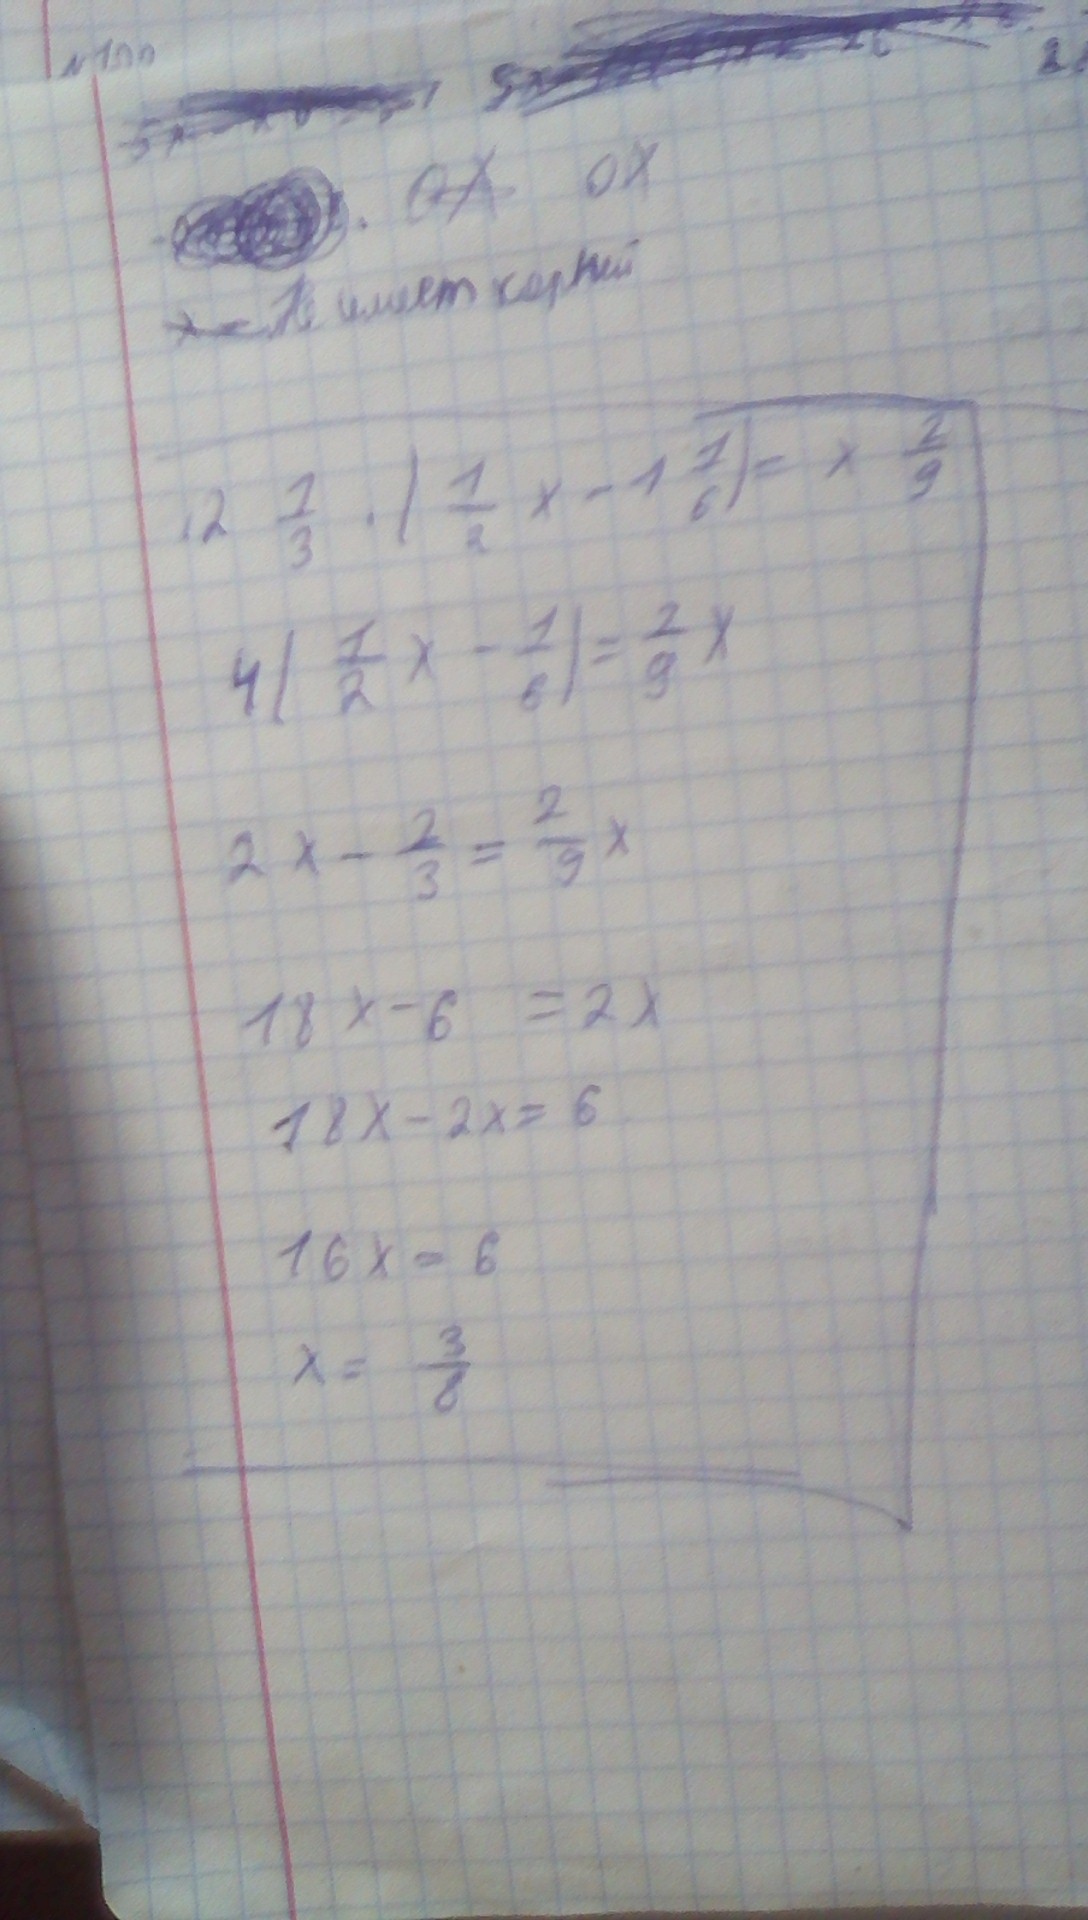 0X 0X
Не имеет корней
2 1/3 · ( 1/2 x - 1 1/6 ) = x 2/9
4( 1/2 x - 1/6 ) = 2/9 x
2x - 2/3 = 2/9 x
18x - 6 = 2x
18x - 2x = 6
16x = 6
x = 3/8